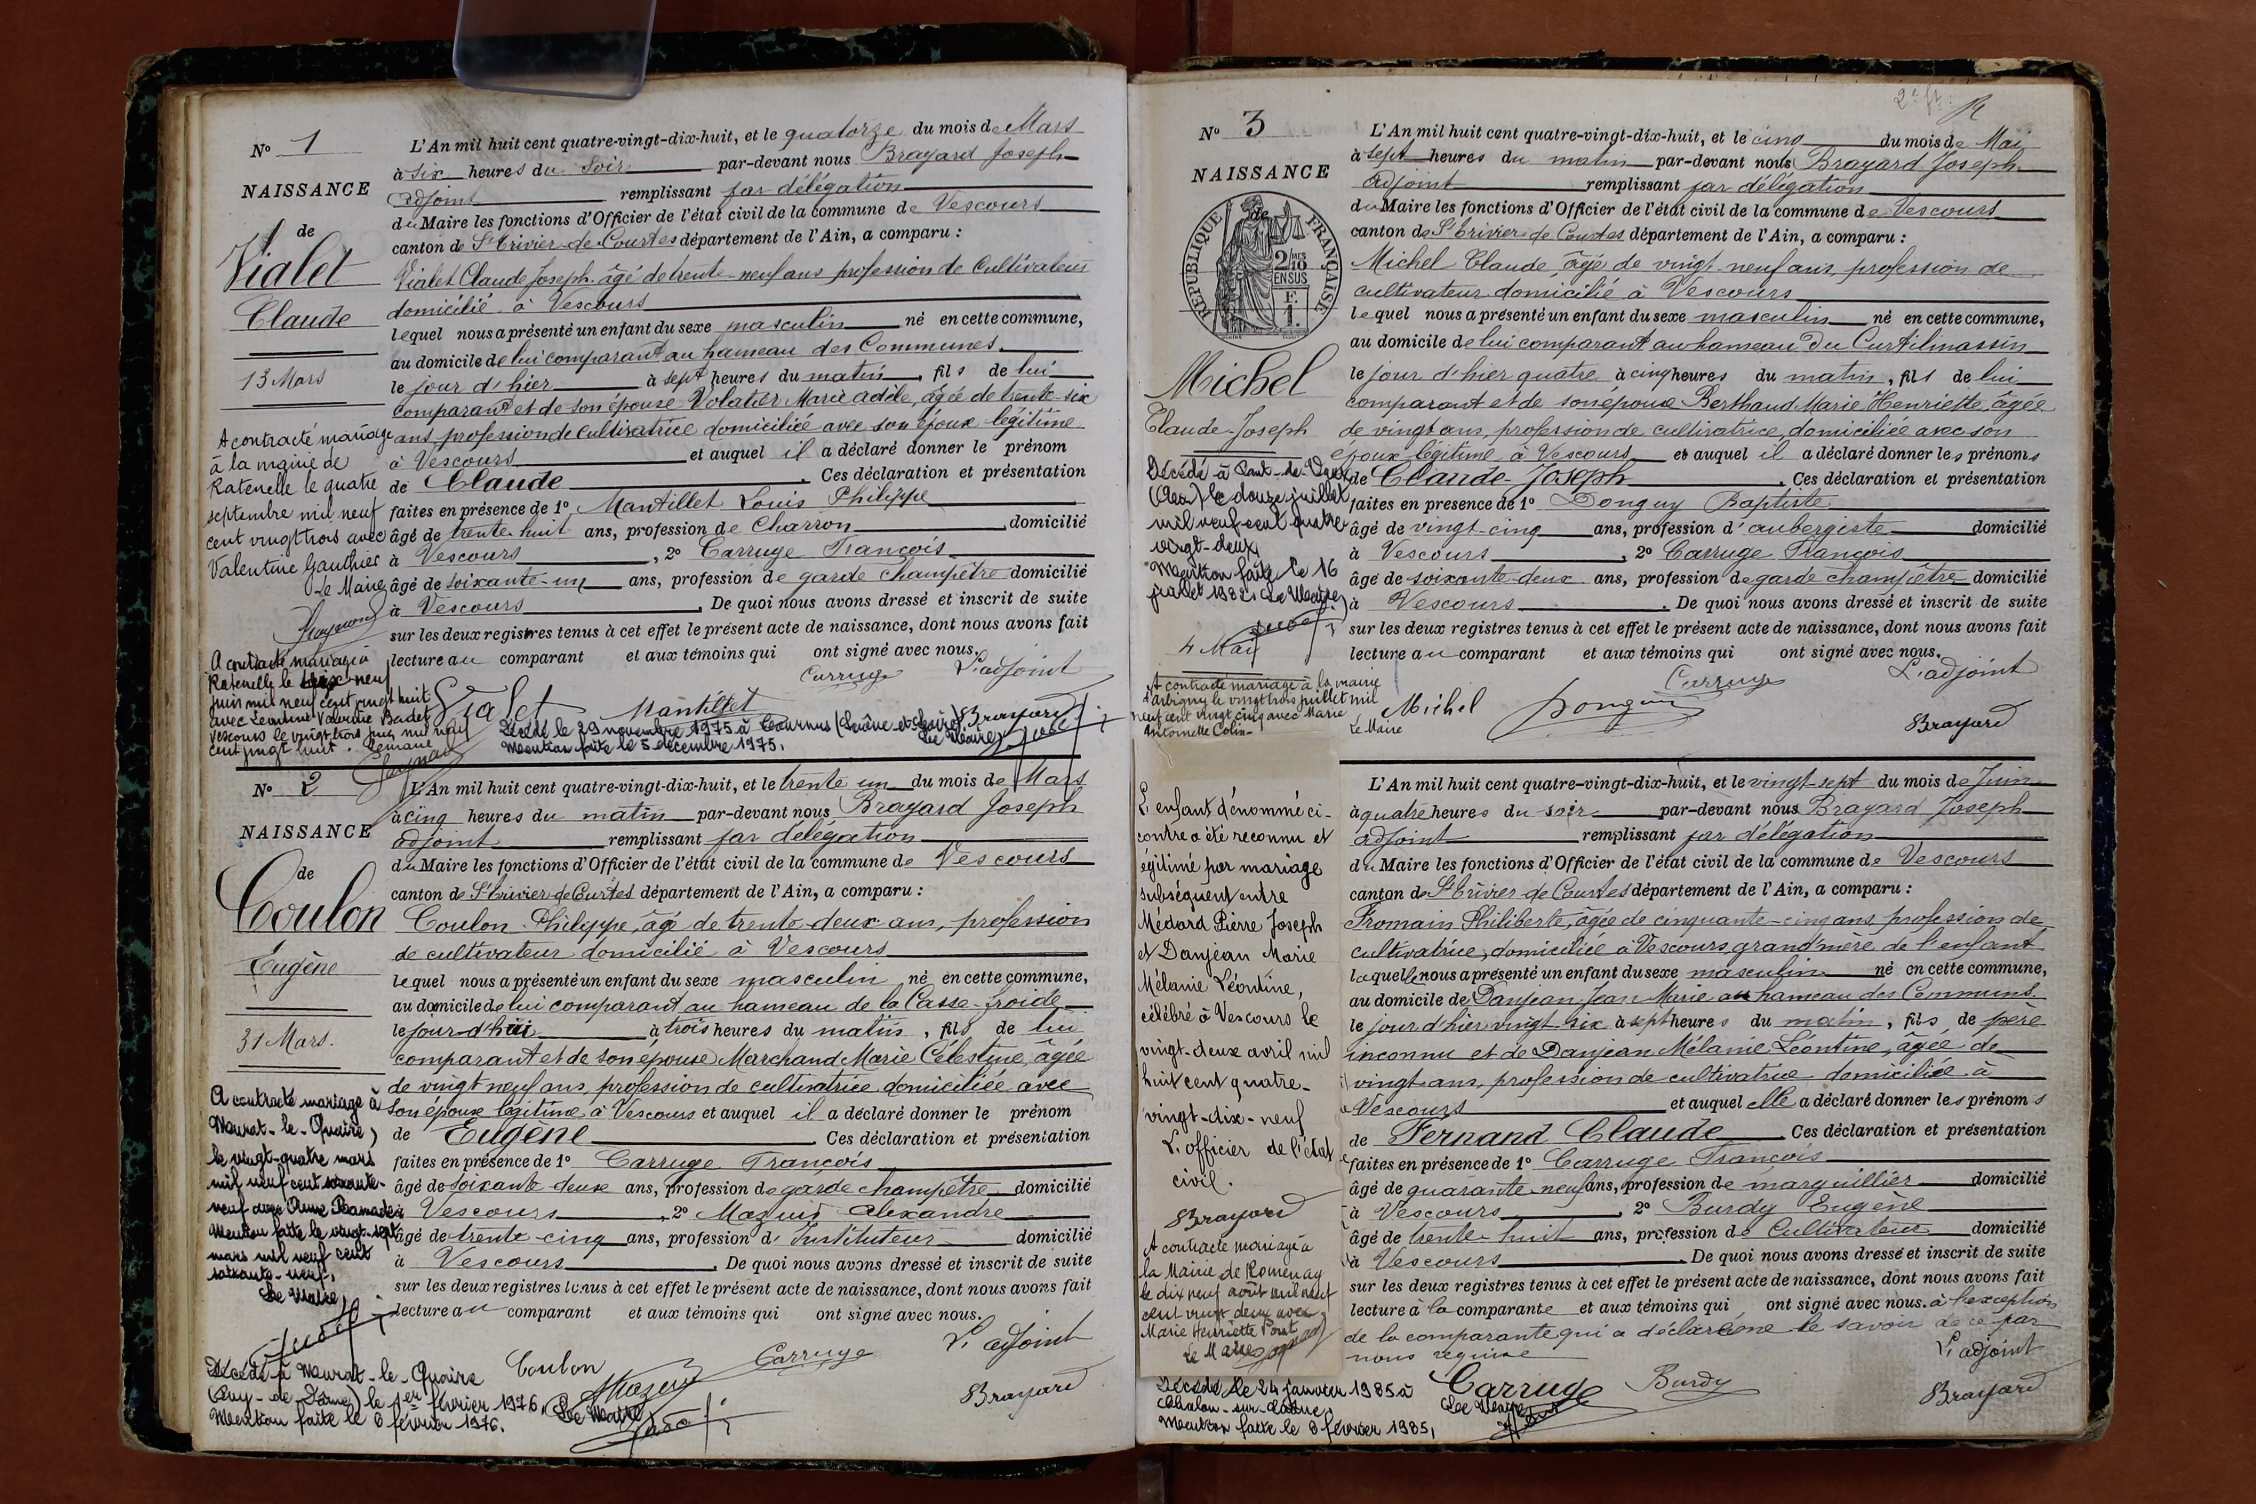 N° 1
NAISSANCE
de
Vialet
Claude
13 Mars
A contracté mariage
à la mairie de
Ratenelle le quatre
septembre mil neuf
cent vingt trois avec
Valentine Gauthier
Le Maire
A contracté mariage à
Ratenelle le neuf
juin mil neuf cent vingt huit
avec Léontine Valentine Badet
Vescours le vingt trois juin mil neuf
cent vingt huit. Le maire
L'An mil huit cent quatre-vingt-dix-huit, et le quatorze du mois de Mars
à six heures du soir par-devant nous Brayard Joseph
adjoint remplissant par délégation
du Maire les fonctions d'Officier de l'état civil de la commune de Vescours
canton de St Trivier-de-Courtes département de l'Ain, a comparu :
Vialet Claude Joseph âgé de trente-neuf ans profession de Cultivateur
domicilié à Vescours
lequel nous a présenté un enfant du sexe masculin né en cette commune,
au domicile de lui comparant au hameau des Communes
le jour d'hier à sept heures du matin, fils de lui
comparant et de son épouse Volatier Marie adèle, âgée de trente-six
ans, profession de cultivatrice domiciliée avec son époux légitime
à Vescours et auquel il a déclaré donner le prénom
de Claude. Ces déclaration et présentation
faites en présence de 1° Mantillet Louis Philippe
âgé de trente-huit ans, profession de Charron domicilié
à Vescours, 2° Carruge François
âgé de soixante-un ans, profession de garde champêtre domicilié
à Vescours. De quoi nous avons dressé et inscrit de suite
sur les deux registres tenus à cet effet le présent acte de naissance, dont nous avons fait
lecture au comparant et aux témoins qui ont signé avec nous.
Carruge L'adjoint
Vialet Mantillet Brayard
Décédé le 29 novembre 1975 à Tournus (Saône-et-Loire)
Mention faite le 5 décembre 1975. Le Maire,
N° 2
NAISSANCE
de
Coulon
Eugène
31 Mars.
A contracté mariage à
Murat-le-Quaire,
le vingt-quatre mars
mil neuf cent soixante-
neuf avec
Mention faite le vingt-sept
mars mil neuf cent
soixante-neuf,
Le Maire,
L'An mil huit cent quatre-vingt-dix-huit, et le trente un du mois de Mars
à cinq heures du matin par-devant nous Brayard Joseph
adjoint remplissant par délégation
du Maire les fonctions d'Officier de l'état civil de la commune de Vescours
canton de St Trivier-de-Courtes département de l'Ain, a comparu :
Coulon Philippe, âgé de trente-deux ans, profession
de cultivateur domicilié à Vescours
lequel nous a présenté un enfant du sexe masculin né en cette commune,
au domicile de lui comparant au hameau de la Casse-froide
le jour d'hui à trois heures du matin, fils de lui
comparant et de son épouse Marchand Marie Célestine, âgée
de vingt neuf ans, profession de cultivatrice domiciliée avec
son époux légitime à Vescours et auquel il a déclaré donner le prénom
de Eugène Ces déclaration et présentation
faites en présence de 1° Carruge François
âgé de soixante deux ans, profession de garde champêtre domicilié
à Vescours, 2° Mazuis Alexandre
âgé de trente-cinq ans, profession d'Instituteur domicilié
à Vescours. De quoi nous avons dressé et inscrit de suite
sur les deux registres tenus à cet effet le présent acte de naissance, dont nous avons fait
lecture au comparant et aux témoins qui ont signé avec nous.
Coulon Carruge L'adjoint
Brayard
Décédé à Murat-le-Quaire
(Puy-de-Dôme) le 1er février 1976.
Mention faite le 6 février 1976. Le Maire,
N° 3
NAISSANCE
de
RÉPUBLIQUE FRANÇAISE
2/10 MES
EN SUS
F.
1.
Michel
Claude-Joseph
Décédé à Pont-de-Vaux
(Ain) le douze juillet
mil neuf cent quatre
vingt-deux,
Mention faite le 16
juillet 1982. Le Maire,
4 Mai
A contracté mariage à la mairie
d'Arbigny le vingt trois juillet mil
neuf cent vingt cinq avec Marie
Antoinette Colin-
Le Maire
L'An mil huit cent quatre-vingt-dix-huit, et le cinq du mois de Mai
à sept heures du matin par-devant nous Brayard Joseph
adjoint remplissant par délégation
du Maire les fonctions d'Officier de l'état civil de la commune de Vescours
canton de St Trivier-de-Courtes département de l'Ain, a comparu :
Michel Claude, âgé de vingt-neuf ans, profession de
cultivateur domicilié à Vescours
lequel nous a présenté un enfant du sexe masculin né en cette commune,
au domicile de lui comparant au hameau du Curtilmassin
le jour d'hier quatre à cinq heures du matin, fils de lui
comparant et de son épouse Berthaud Marie Henriette, âgée
de vingt ans, profession de cultivatrice, domiciliée avec son
époux légitime, à Vescours et auquel il a déclaré donner les prénoms
de Claude-Joseph. Ces déclaration et présentation
faites en présence de 1° Donguy Baptiste
âgé de vingt-cinq ans, profession d'aubergiste domicilié
à Vescours, 2° Carruge François
âgé de soixante-deux ans, profession de garde champêtre domicilié
à Vescours. De quoi nous avons dressé et inscrit de suite
sur les deux registres tenus à cet effet le présent acte de naissance, dont nous avons fait
lecture au comparant et aux témoins qui ont signé avec nous.
Carruge L'adjoint
Michel Donguy Brayard
L'enfant dénommé ci-
contre a été reconnu et
légitimé par mariage
subséquent entre
Médard Pierre Joseph
et Danjean Marie
Mélanie Léontine,
célébré à Vescours le
vingt-deux avril mil
huit cent quatre-
vingt-dix-neuf
L'officier de l'état
civil.
Brayard
A contracté mariage à
la Mairie de Romenay
le dix neuf août mil neuf
cent vingt deux avec
Marie Henriette Pont
Le Maire
L'An mil huit cent quatre-vingt-dix-huit, et le vingt-sept du mois de Juin
à quatre heures du soir par-devant nous Brayard Joseph
adjoint remplissant par délégation
du Maire les fonctions d'Officier de l'état civil de la commune de Vescours
canton de St Trivier-de-Courtes département de l'Ain, a comparu :
Fromain Philiberte, âgée de cinquante-cinq ans profession de
cultivatrice, domiciliée à Vescours, grand'mère de l'enfant
laquelle nous a présenté un enfant du sexe masculin né en cette commune,
au domicile de Danjean Jean Marie au hameau des Communs
le jour d'hier vingt-six à sept heures du matin, fils de père
inconnu et de Danjean Mélanie Léontine, âgée de
vingt ans, profession de cultivatrice domiciliée à
Vescours et auquel elle a déclaré donner les prénoms
de Fernand Claude. Ces déclaration et présentation
faites en présence de 1° Carruge François
âgé de quarante-neuf ans, profession de marguillier domicilié
à Vescours, 2° Burdy Eugène
âgé de trente-huit ans, profession de Cultivateur domicilié
à Vescours. De quoi nous avons dressé et inscrit de suite
sur les deux registres tenus à cet effet le présent acte de naissance, dont nous avons fait
lecture à la comparante et aux témoins qui ont signé avec nous. à l'exception
de la comparante qui a déclaré ne le savoir de ce par
nous requise
L'adjoint
Carruge Burdy Brayard
Décédé le 24 janvier 1985 à
Chalon-sur-Saône.
Mention faite le 8 février 1985, Le Maire,